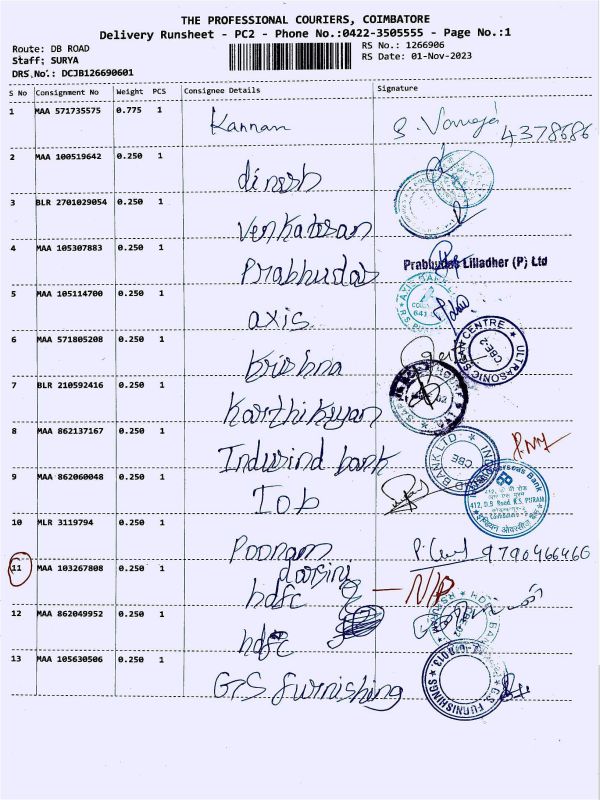 THE PROFESSIONAL COURIERS, COIMBATORE
Delivery Runsheet - PC2 - Phone No.:0422-3505555 - Page No.:1
Route: DB ROAD
Staff; SURYA
DRS No.: DCJB126690601
RS No.: 1266906
RS Date: 01-Nov-2023
S No Consignment No Weight PCS Consignee Details Signature
1 MAA 571735575 0.775 1 Kannan 4378686
2 MAA 100519642 0.250 1 dinesh
3 BLR 2701029054 0.250 1 Venkatesan
4 MAA 105307883 0.250 1 Prabhudas Prabhudas Lilladher (P) Ltd
5 MAA 105114700 0.250 1 axis
6 MAA 571805208 0.250 1 krishna ULTRASONIC SCAN CENTRE CBE-2
7 BLR 210592416 0.250 1 Karthikeyan
8 MAA 862137167 0.250 1 Indusind bank BANK LTD. CBE
9 MAA 862060048 0.250 1 Iob Overseas Bank
412, D.B Road R.S. PURAM
10 MLR 3119794 0.250 1 Poonam 9790466466
11 MAA 103267808 0.250 1 hdfc N/P
12 MAA 862049952 0.250 1 hdfc
13 MAA 105630506 0.250 1 G.S furnishing G.S. FURNISHINGS